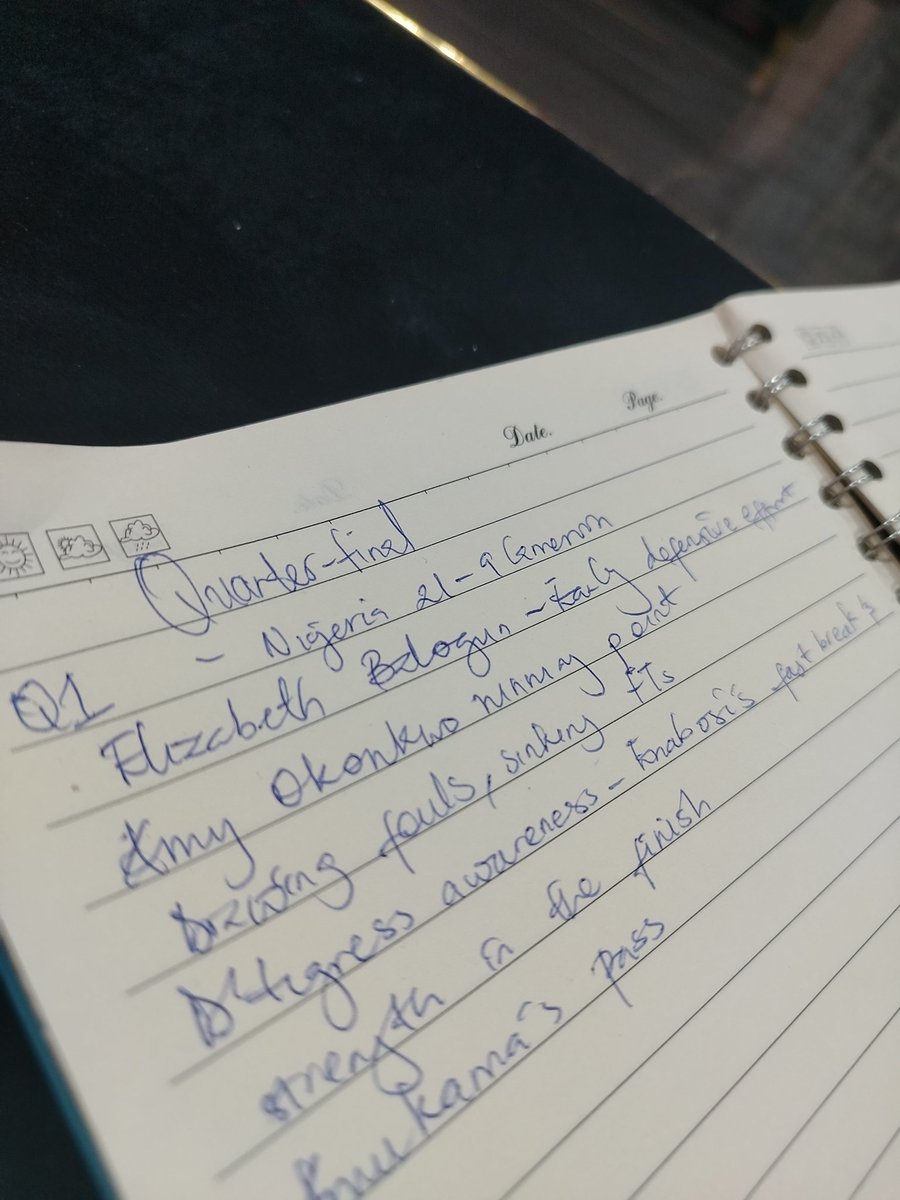 Date. Page.
Quarter-final
Q1 - Nigeria 21-9 Cameroon
Elizabeth Balogun - Early defensive effort
Amy Okonkwo running point
Drawing fouls, sinking FTs
D'tigress awareness - fast break &
strength in the finish
Amukamara's pass